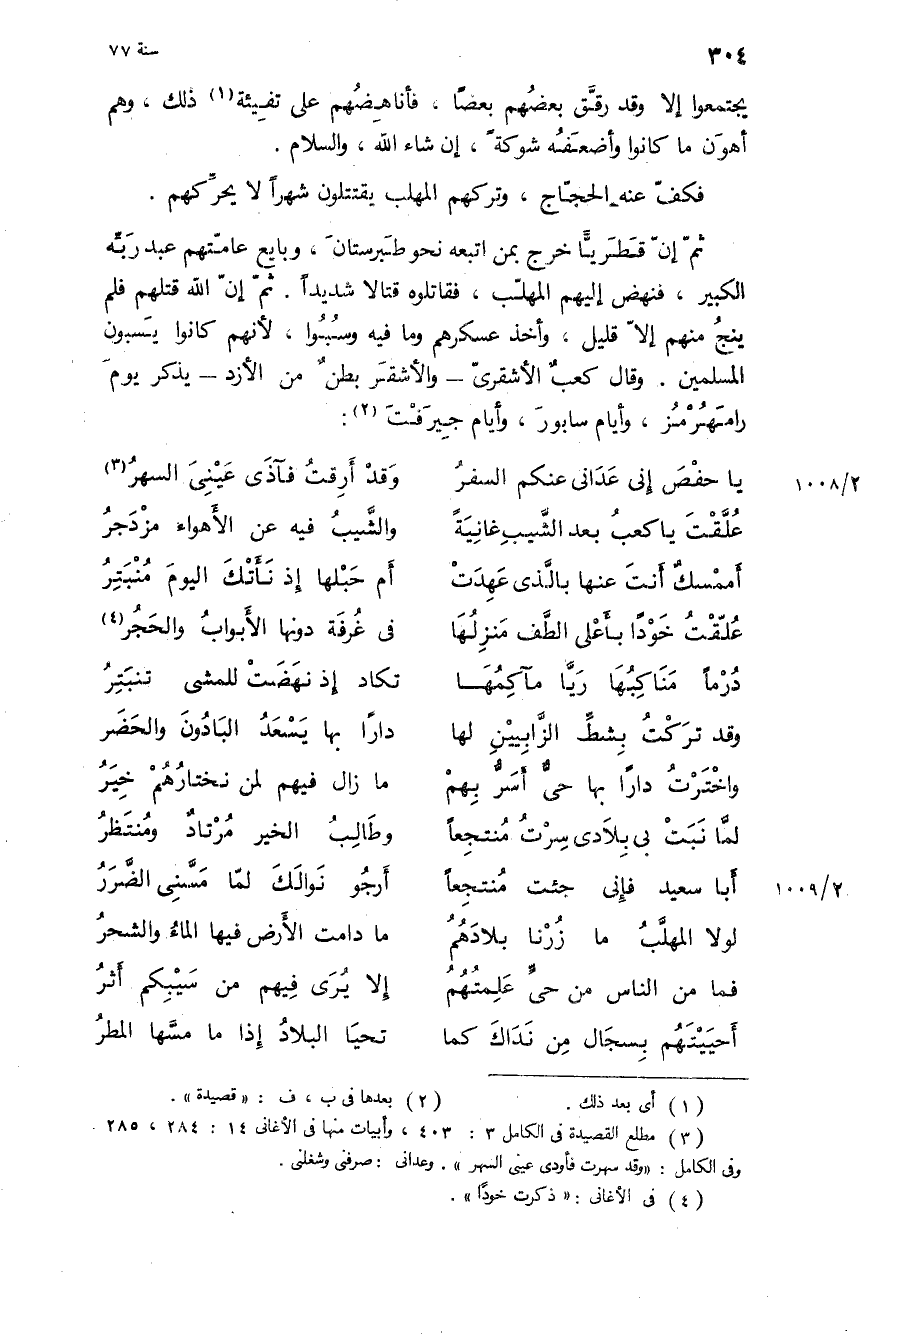 ٣٠٤ سنة ٧٧
يجتمعوا إلا وقد رقَّق بعضُهم بعضًا ، فأناهِضُهم على تفيئة(١) ذلك ، وهم
أهوَن ما كانوا وأضعَفُه شوكةً ، إن شاء الله ، والسلام .
فكفّ عنه الحجّاج ، وتركهم المهلب يقتتلون شهراً لا يحرِّكهم .
ثمّ إنّ قَطَريًّا خرج بمن اتبعه نحو طَبرستانَ ، وبايع عامّتهم عبد ربّه
الكبير ، فنهض إليهم المهلّب ، فقاتلوه قتالا شديداً . ثمّ إنّ الله قتلهم فلم
ينجُ منهم إلاّ قليل ، وأخذ عسكرهم وما فيه وسُبُوا ، لأنهم كانوا يَسبون
المسلمين . وقال كعبٌ الأشقرىّ – والأشقَر بطنٌ من الأزد – يذكر يومَ
رامَهُرْمُز ، وأيام سابورَ ، وأيام جِيرَفْتَ (٢):
يا حفْصَ إنى عَدَانى عنكم السفرُ وَقدْ أَرِقتُ فآذَى عَيْنِىَ السهرُ(٣) ١٠٠٨/٢
عُلَّقْتَ ياكعبُ بعد الشَّيبِ غانِيَةً والشَّيبُ فيه عن الأَهواء مزْدَجرُ
أَممْسكٌ أَنتَ عنها بالَّذى عَهِدَتْ أَم حَبْلها إِذ نَأَتْكَ اليومَ مُنْبَتِرُ
عُلّقْتُ خَوْدًا بأَعْلى الطَّف مَنزِلُهَا فى غُرفَة دونها الأَبوابُ والحَجَُر(٤)
دُرْماً مَنَاكِبُهَا رَيَّا مآكِمُهَا تكاد إِذ نهَضَتْ للمشى تنبَتِرُ
وقد ترَكْتُ بِشطِّ الزَّابِيِيْنِ لها دارًا بها يَسْعَدُ البَادُونَ والحَضَر
واخْتَرْتُ دارًا بها حىٌّ أُسَرُّ بِهمْ ما زال فيهم لمن نختارُهُمْ خِيَرُ
لمَّا نَبَتْ بى بلادى سِرْتُ مُنتجعاً وطَالِبُ الخير مُرْتادٌ ومُنتَظرُ
أَبا سعيد فإِنى جئت مُنتجعاً أَرجُو نَوالَكَ لمّا مَسَّنِى الضَّرَرُ ١٠٠٩/٢
لولا المهلَّبُ ما زُرْنا بلادَهُمُ ما دامت الأَرض فيها الماءُ والشجرُ
فما من الناس من حىٍّ عَلِمتُهُمُ إِلا يُرَى فِيهم من سَيْبِكم أَثرُ
أَحيَيْتَهُم بِسجَال مِن نَدَاكَ كما تحيَا البلادُ إِذا ما مسَّها المطرُ
(١) أى بعد ذلك . (٢) بعدها فى ب ، ف : « قصيدة » .
(٣) مطلع القصيدة فى الكامل ٣ : ٤٠٣ ، وأبيات منها فى الأغانى ١٤ : ٢٨٤ ، ٢٨٥ .
وفى الكامل : «وقد سهرت فأودى عينى السهر » . وعدانى : صرفنى وشغلنى .
(٤) فى الأغانى : « ذكرت خودًا » .